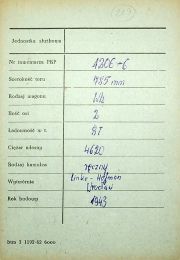 (213)
Jednostka służbowa
Nr inwentarza PKP 1206-6
Szerokość toru 785 mm
Rodzaj wagonu Wb
Ilość osi 2
Ładowność w t. 8T
Ciężar własny 4620
Rodzaj hamulca ręczny
Wytwórnia Linke-Hofman
Wrocław
Rok budowy 1943